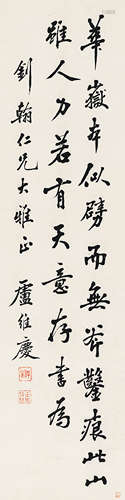 華嶽本似劈而無斧鑿痕此山
雖人力若有天意存書為
釗翰仁兄大雅正
盧維慶